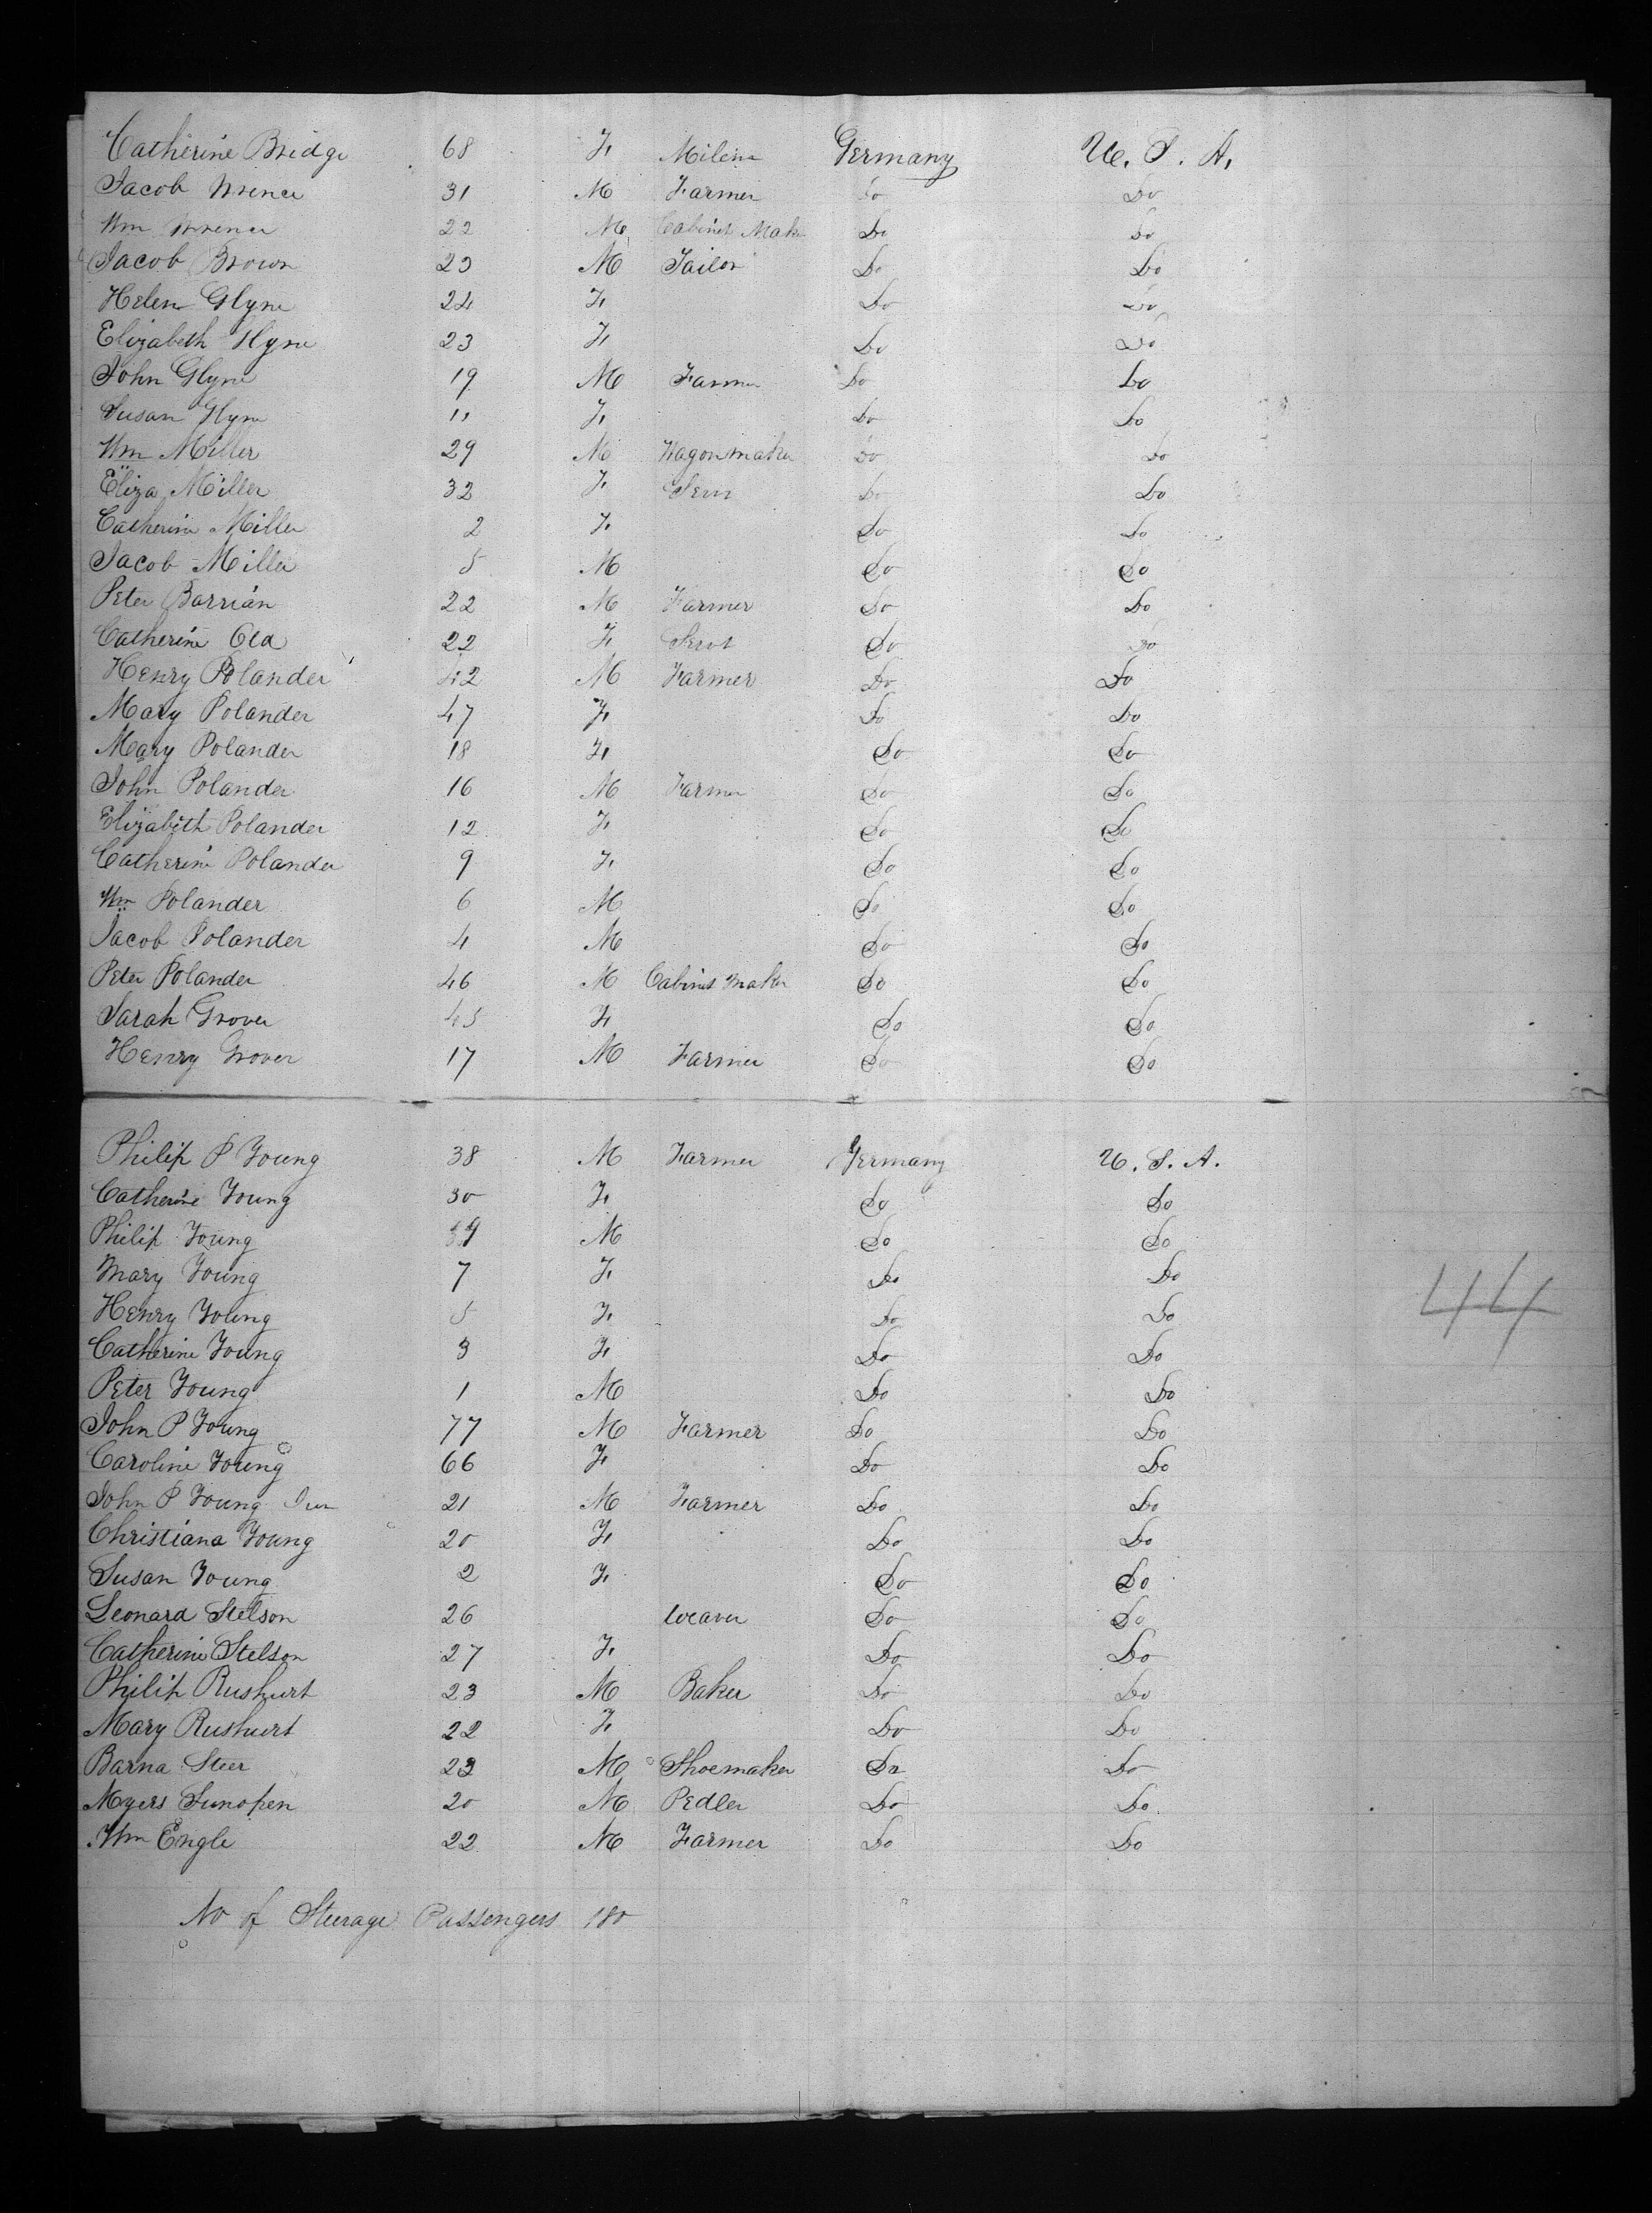 Catherine Bridge 68 F. Germany U. S. A.
Jacob 31 M Farmer Do Do
Wm 22 M Cabinet Maker Do Do
Jacob Brown 23 M Tailor Do Do
Helen Glyne 24 F. Do Do
Elizabeth Glyne 23 F. Do Do
John Glyne 19 M Farmer Do Do
Susan Glyne 11 F. Do Do
Wm Miller 29 M Wagonmaker Do Do
Eliza Miller 32 F. Do Do
Catherine Miller 2 F. Do Do
Jacob Miller 5 M Do Do
Peter Barrian 22 M Farmer Do Do
Catherine 22 F. Servt Do Do
Henry Polander 42 M Farmer Do Do
Mary Polander 47 F. Do Do
Mary Polander 18 F. Do Do
John Polander 16 M Farmer Do Do
Elizabeth Polander 12 F. Do Do
Catherine Polander 9 F. Do Do
Wm Polander 6 M Do Do
Jacob Polander 4 M Do Do
Peter Polander 46 M Cabinet maker Do Do
Sarah Grover 45 F. Do Do
Henry Grover 17 M Farmer Do Do
Philip P Young 38 M Farmer Germany U. S. A.
Catherine Young 30 F. Do Do
Philip Young 9 M Do Do
Mary Young 7 F. Do Do
44
Henry Young 5 F. Do Do
Catherine Young 3 F. Do Do
Peter Young 1 M Do Do
John P Young 77 M Farmer Do Do
Caroline Young 66 F. Do Do
John P Young Jun 21 M Farmer Do Do
Christiana Young 20 F. Do Do
Susan Young 2 F. Do Do
Leonard Stelson 26 Weaver Do Do
Catherine Stelson 27 F. Do Do
Philip Rushurt 23 M Baker Do Do
Mary Rushurt 22 F. Do Do
Barna Steer 23 M Shoemaker Do Do
Myers Sunopen 20 M Pedler Do Do
Wm Engle 22 M Farmer Do Do
No of Steerage Passengers 180